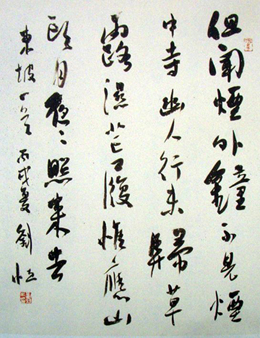 但聞煙外鐘不見煙
中寺幽人行未草
露濕芒屨惟應山
頭月夜々照來去
東坡 丙戌夏劉恒